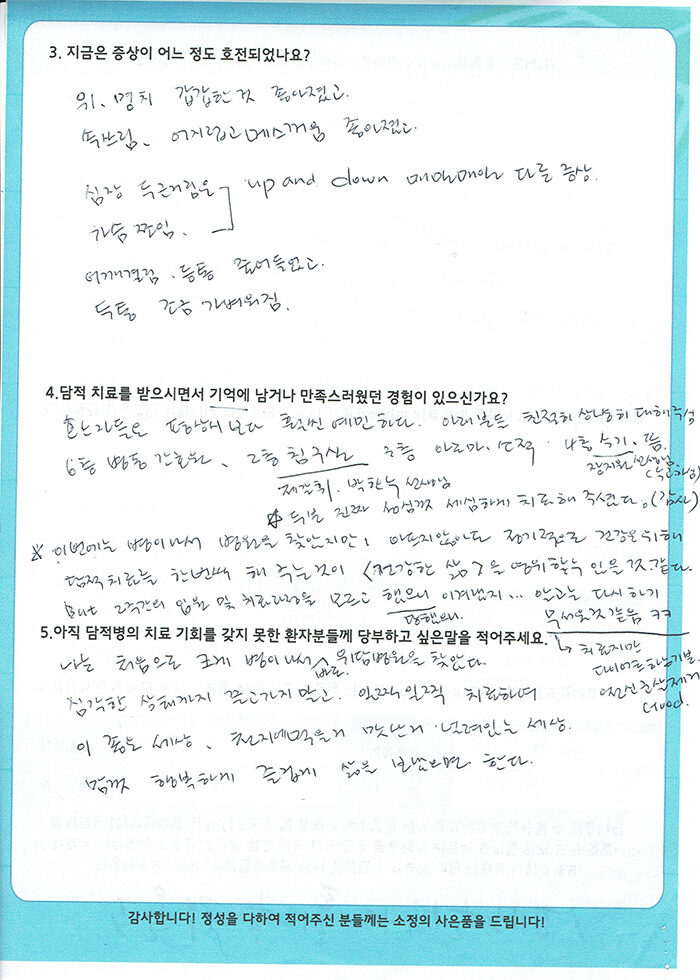 3. 지금은 증상이 어느 정도 호전되었나요?
위、명치 갑갑한것 좋아졌고.
속쓰림、어지럽고 메스꺼움 좋아졌고.
심장 두근거림은 up and down 매번매번 다른 증상.
가슴 쪼임、
어깨결림、등통 줄어들었고.
두통 조금 가벼워짐.
4.담적 치료를 받으시면서 기억에 남거나 만족스러웠던 경험이 있으신가요?
환자들은 보다 훨씬 예민하다. 여러분들 친절히 상냥히 대해주셨
6층 병동 간호원、2층 침구실 3층 아로마、소적、
박한누 선생님
두분 진짜 성심껏 세심하게 치료해 주셨다。(감사)
※ 이번에는 병이나서 병원을 찾았지만, 아프지않아도 정기적으로 건강을 위해
담적치료를 한번씩 해 주는것이 <건강한 삶>을 영위할수 있을것 같다.
But 2주간의 입원 및 치료과정을 모르고 했으니 이겨냈지... 알고는 다시하기
당했으니. 무서운것같음 ㅋㅋ
5.아직 담적병의 치료 기회를 갖지 못한 환자분들께 당부하고 싶은말을 적어주세요.
↳ 치료지만
나는 처음으로 크게 병이나서 바로 위담병원을 찾았다.
다이어트 하는기분.
심각한 상태까지 끌고가지말고. 일찍일찍 치료하여
Good.
이 좋은 세상、천지에 먹을거 맛난거 널려있는 세상.
맘껏 행복하게 즐겁게 삶을 보냈으면 한다.
감사합니다! 정성을 다하여 적어주신 분들께는 소정의 사은품을 드립니다!